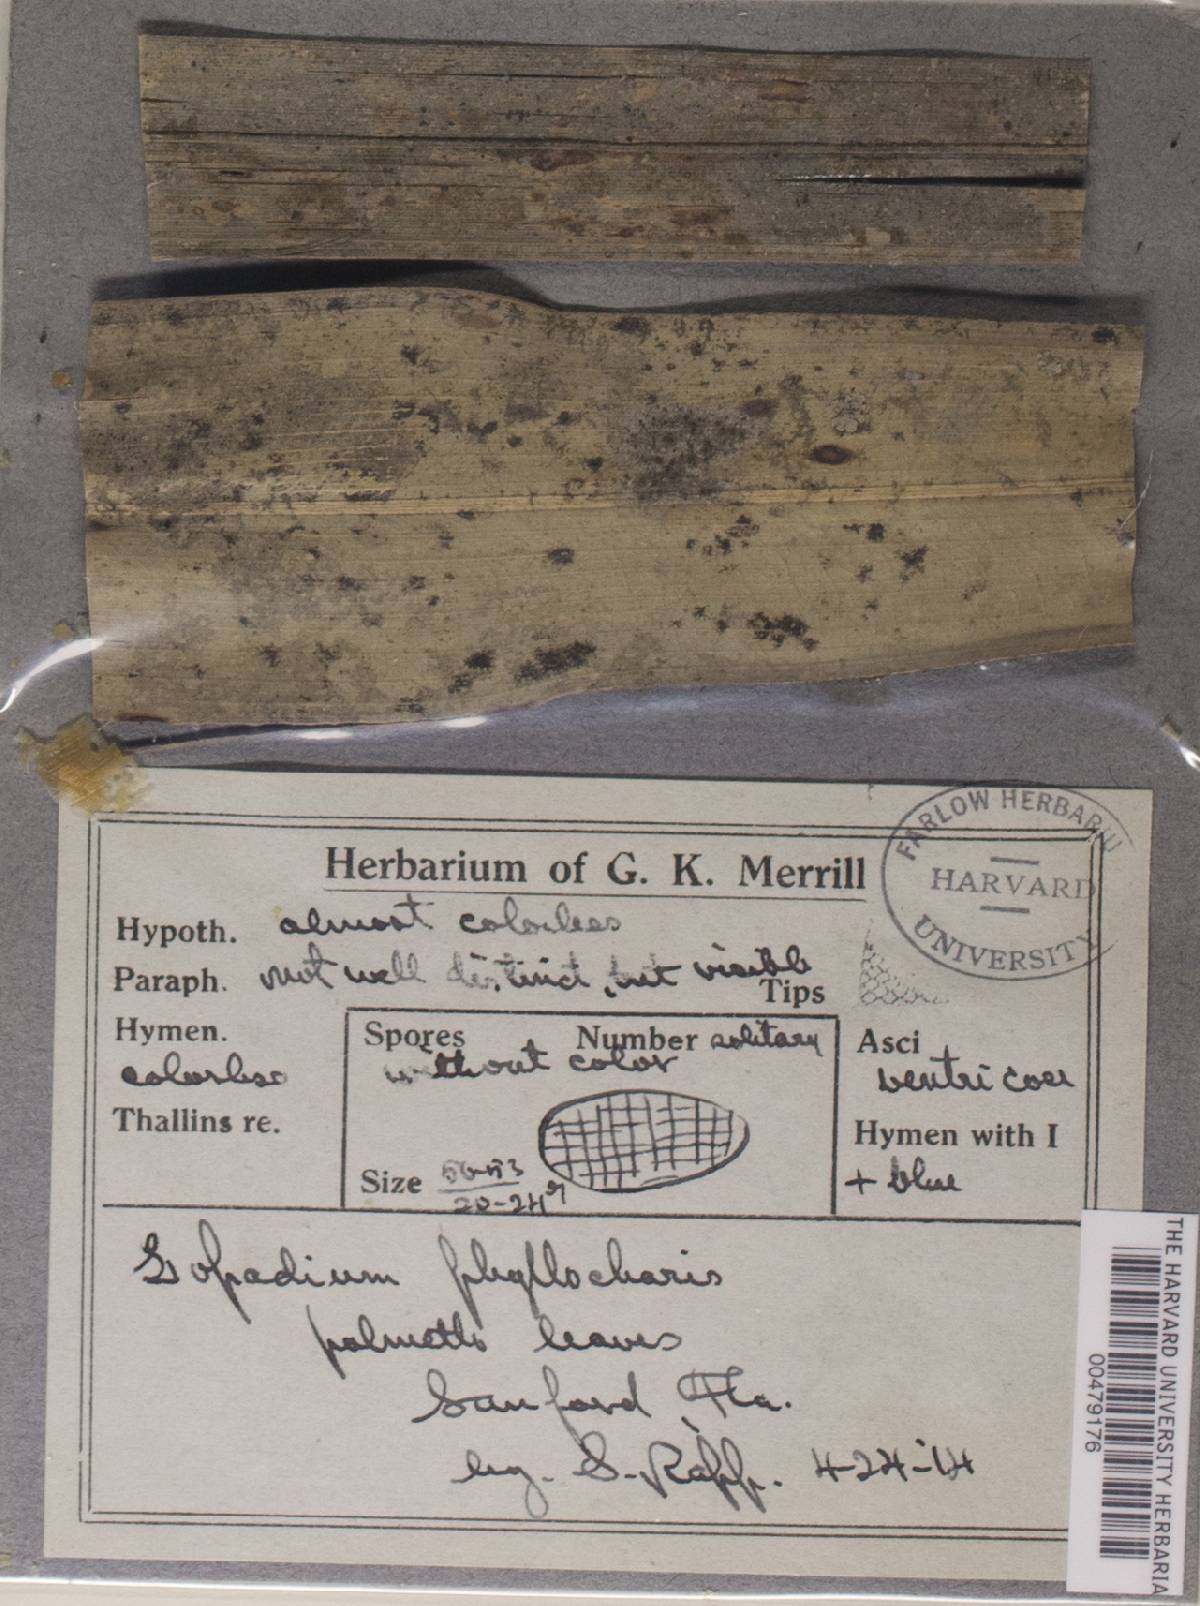 Herbarium of G. K. Merrill
FARLOW HERBARIU
HARVARD
UNIVERSITY
Hypoth. almost colorless
Paraph. not well distinct, but visible
Tips
Hymen.
colorless
Thallins re.
Spores Number solitary
without color
Size
20-24
Asci
ventricose
Hymen with I
+ blue
Lopadium phyllocharis
palmetto leaves
Sanford Fla.
leg. S. Rapp. 4-24-14
THE HARVARD UNIVERSITY HERBARIA
00479176